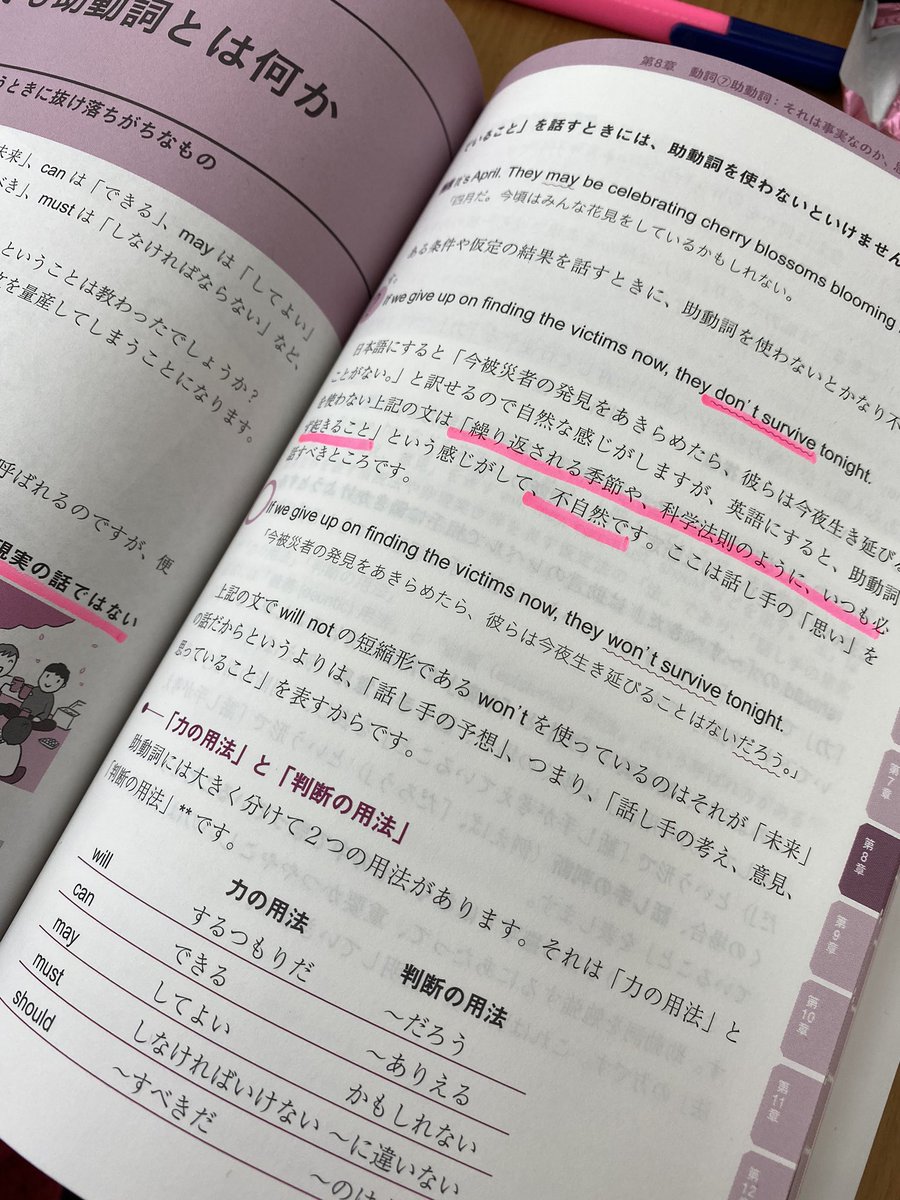 助動詞とは何か
うときに抜け落ちがちなもの
未来」、can は「できる」、may は「してよい」
べき」、must は「しなければならない」など、
ということは教わったでしょうか？
を量産してしまうことになります。
呼ばれるのですが、便
現実の話ではない
第8章 動詞⑦助動詞：それは事実なのか、
ていること」を話すときには、助動詞を使わないといけません
It's April. They may be celebrating cherry blossoms blooming
「四月だ。今頃はみんな花見をしているかもしれない。
ある条件や仮定の結果を話すときに、助動詞を使わないとかなり不
す。
If we give up on finding the victims now, they don't survive tonight.
日本語にすると「今被災者の発見をあきらめたら、彼らは今夜生き延びる
ことがない。」と訳せるので自然な感じがしますが、英語にすると、助動詞
を使わない上記の文は「繰り返される季節や、科学法則のように、いつも必
ず起きること」という感じがして、不自然です。ここは話し手の「思い」を
話すべきところです。
If we give up on finding the victims now, they won't survive tonight.
「今被災者の発見をあきらめたら、彼らは今夜生き延びることはないだろう。」
上記の文で will not の短縮形である won't を使っているのはそれが「未来」
の話だからというよりは、「話し手の予想」、つまり、「話し手の考え、意見、
思っていること」を表すからです。
「力の用法」と「判断の用法」
助動詞には大きく分けて２つの用法があります。それは「力の用法」と
「判断の用法」** です。
力の用法 判断の用法
will するつもりだ ～だろう
can できる ～ありえる
may してよい かもしれない
must しなければいけない ～に違いない
should ～すべきだ ～のは
第7章
第8章
第9章
第10章
第11章
第12